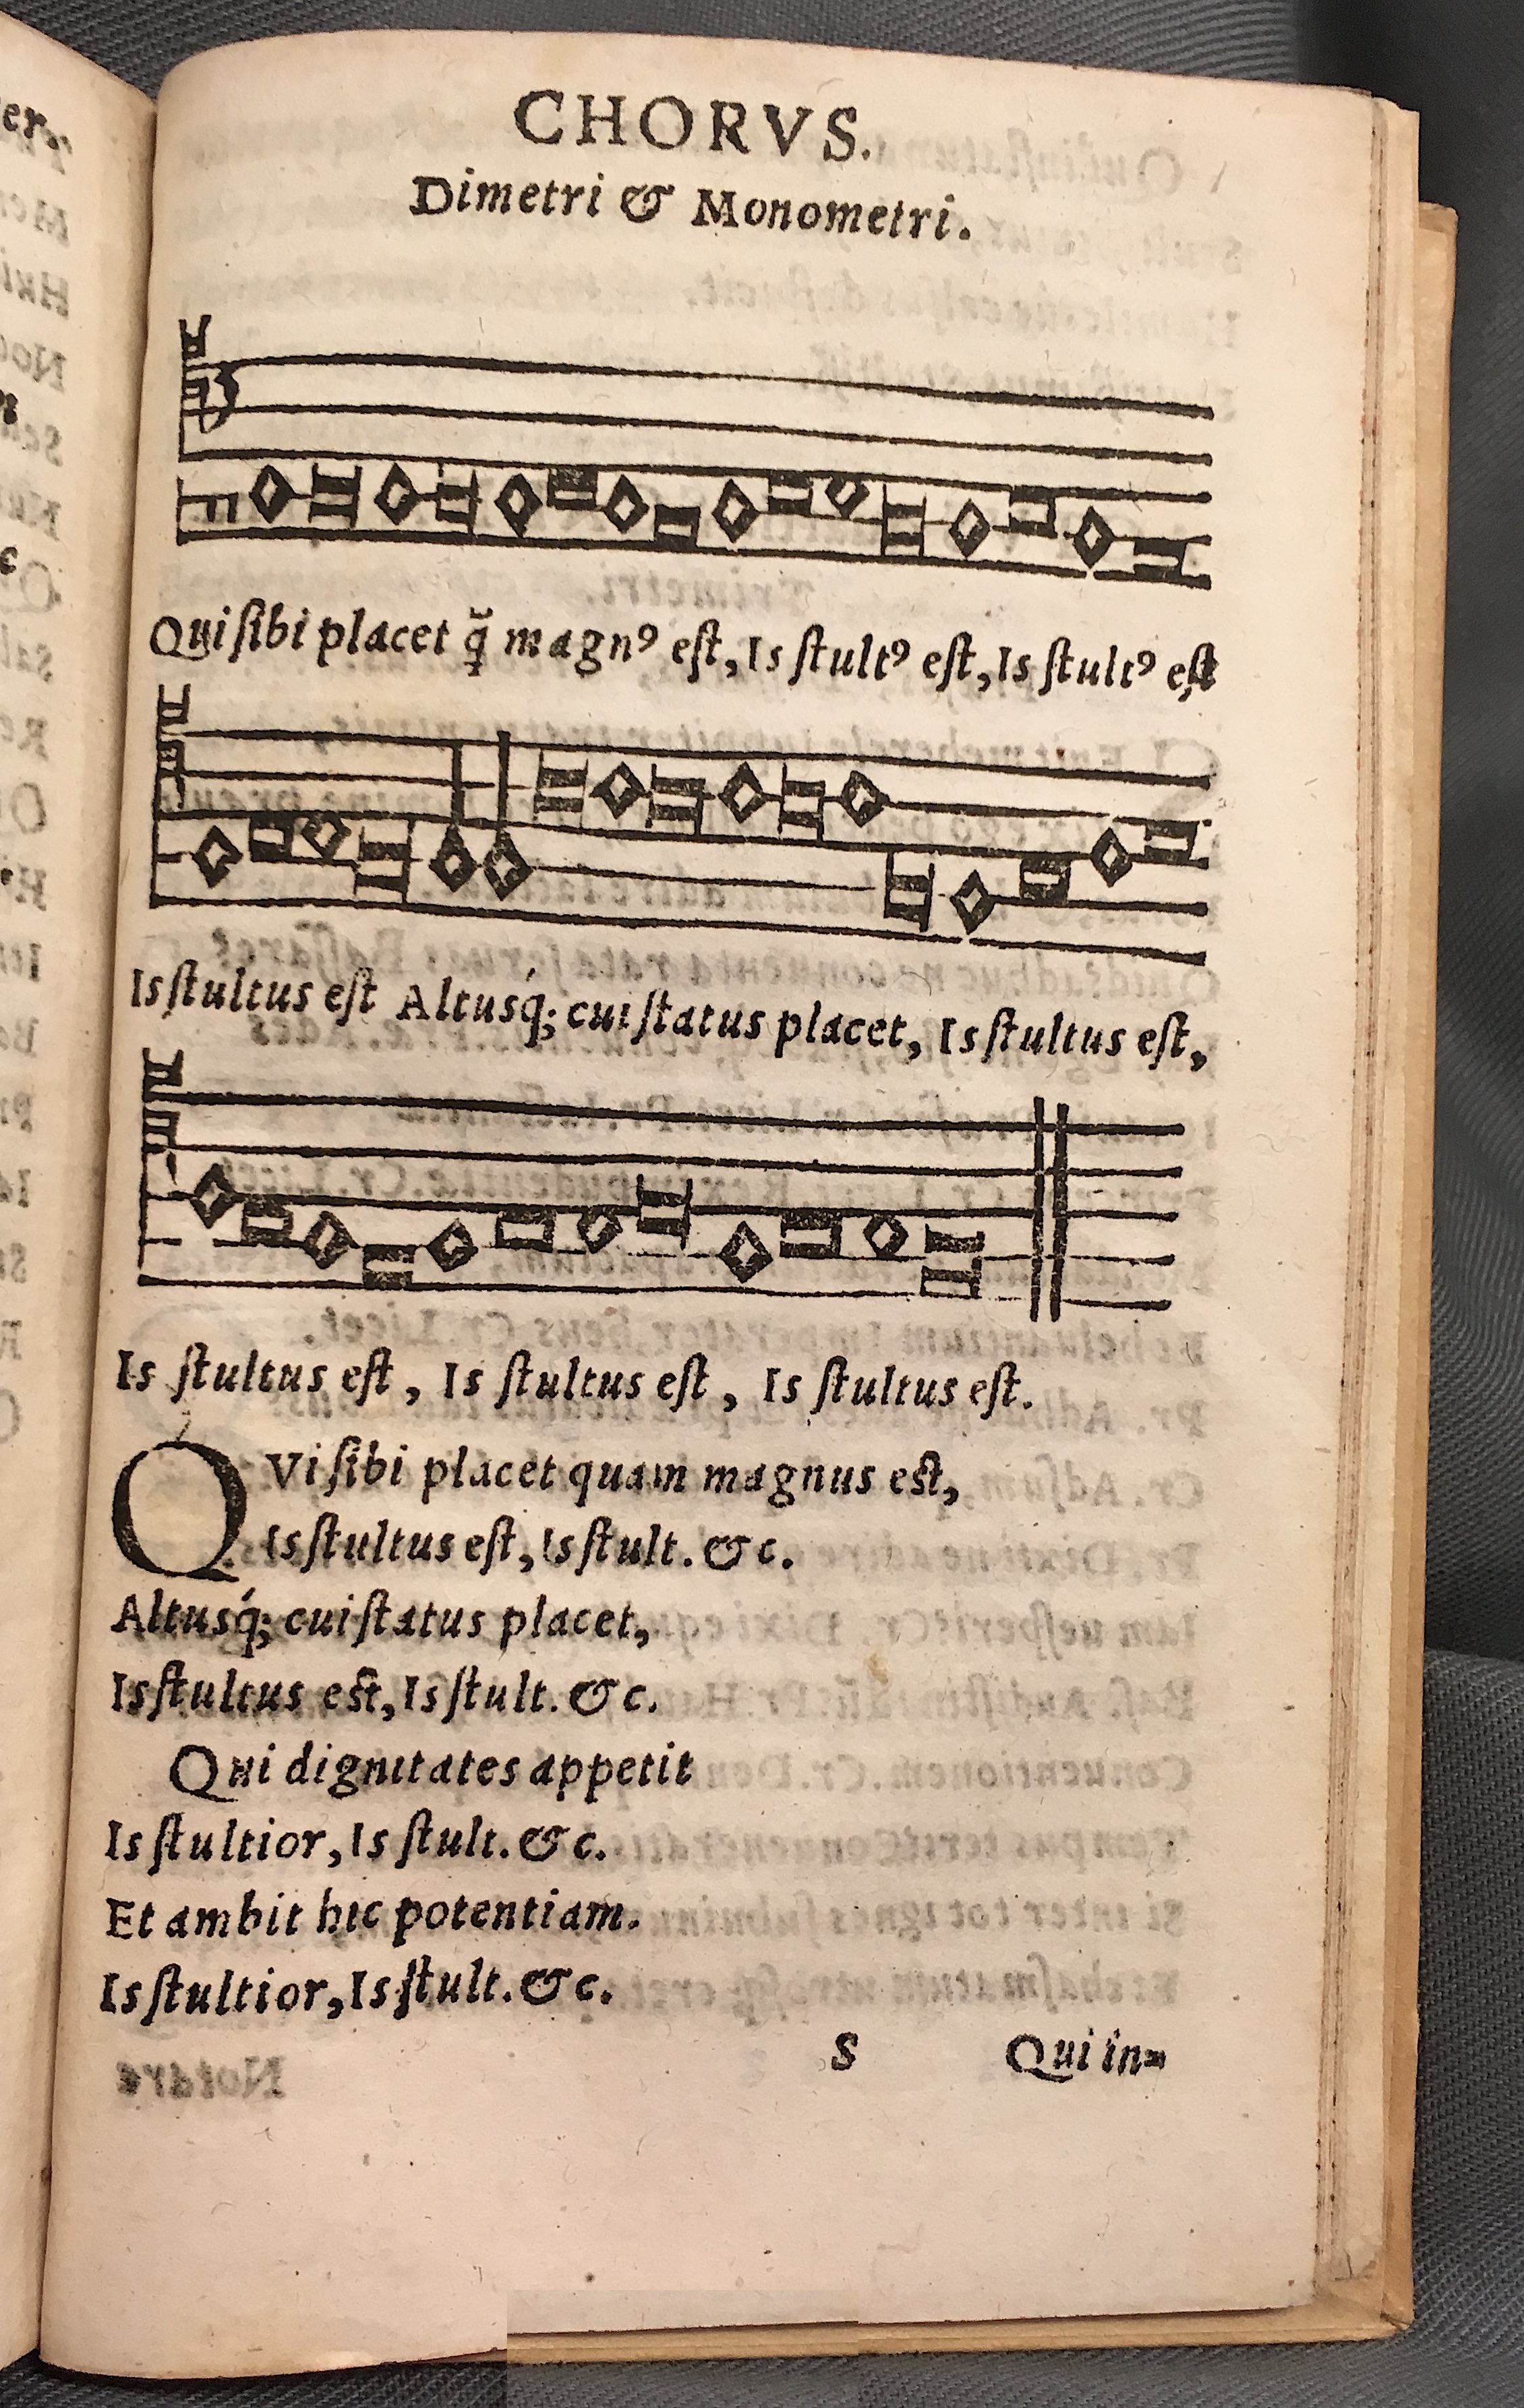 CHORVS.
Dimetri & Monometri.
Qui ſibi placet q̆ magnꝰ eſt, Is ſtultꝰ eſt, Is ſtultꝰ eſt
Is ſtultus eſt Altusq́; cui ſtatus placet, Is ſtultus eſt,
Is ſtultus eſt, Is ſtultus eſt, Is ſtultus eſt.
QVi ſibi placet quam magnus est,
Is ſtultus eſt, Is ſtult. & c.
Altusq́; cui ſtatus placet,
Is ſtultus est, Is ſtult. & c.
Qui dignitates appetit
Is ſtultior, Is ſtult. & c.
Et ambit hic potentiam.
Is ſtultior, Is ſtult. & c.
S Qui in=